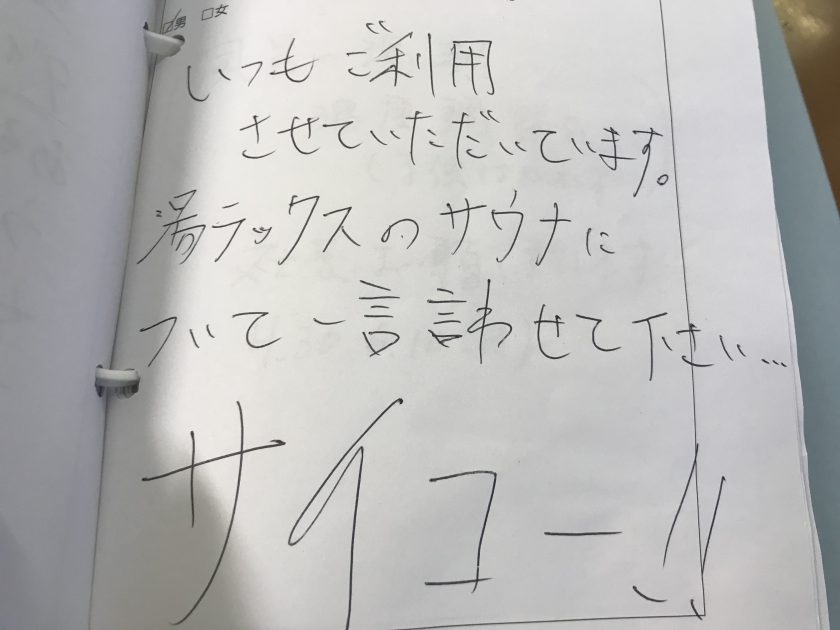 ☑男 □女
いつもご利用
させていただいています。
湯ラックスのサウナに
ついて一言言わせて下さい...
サイコー!!